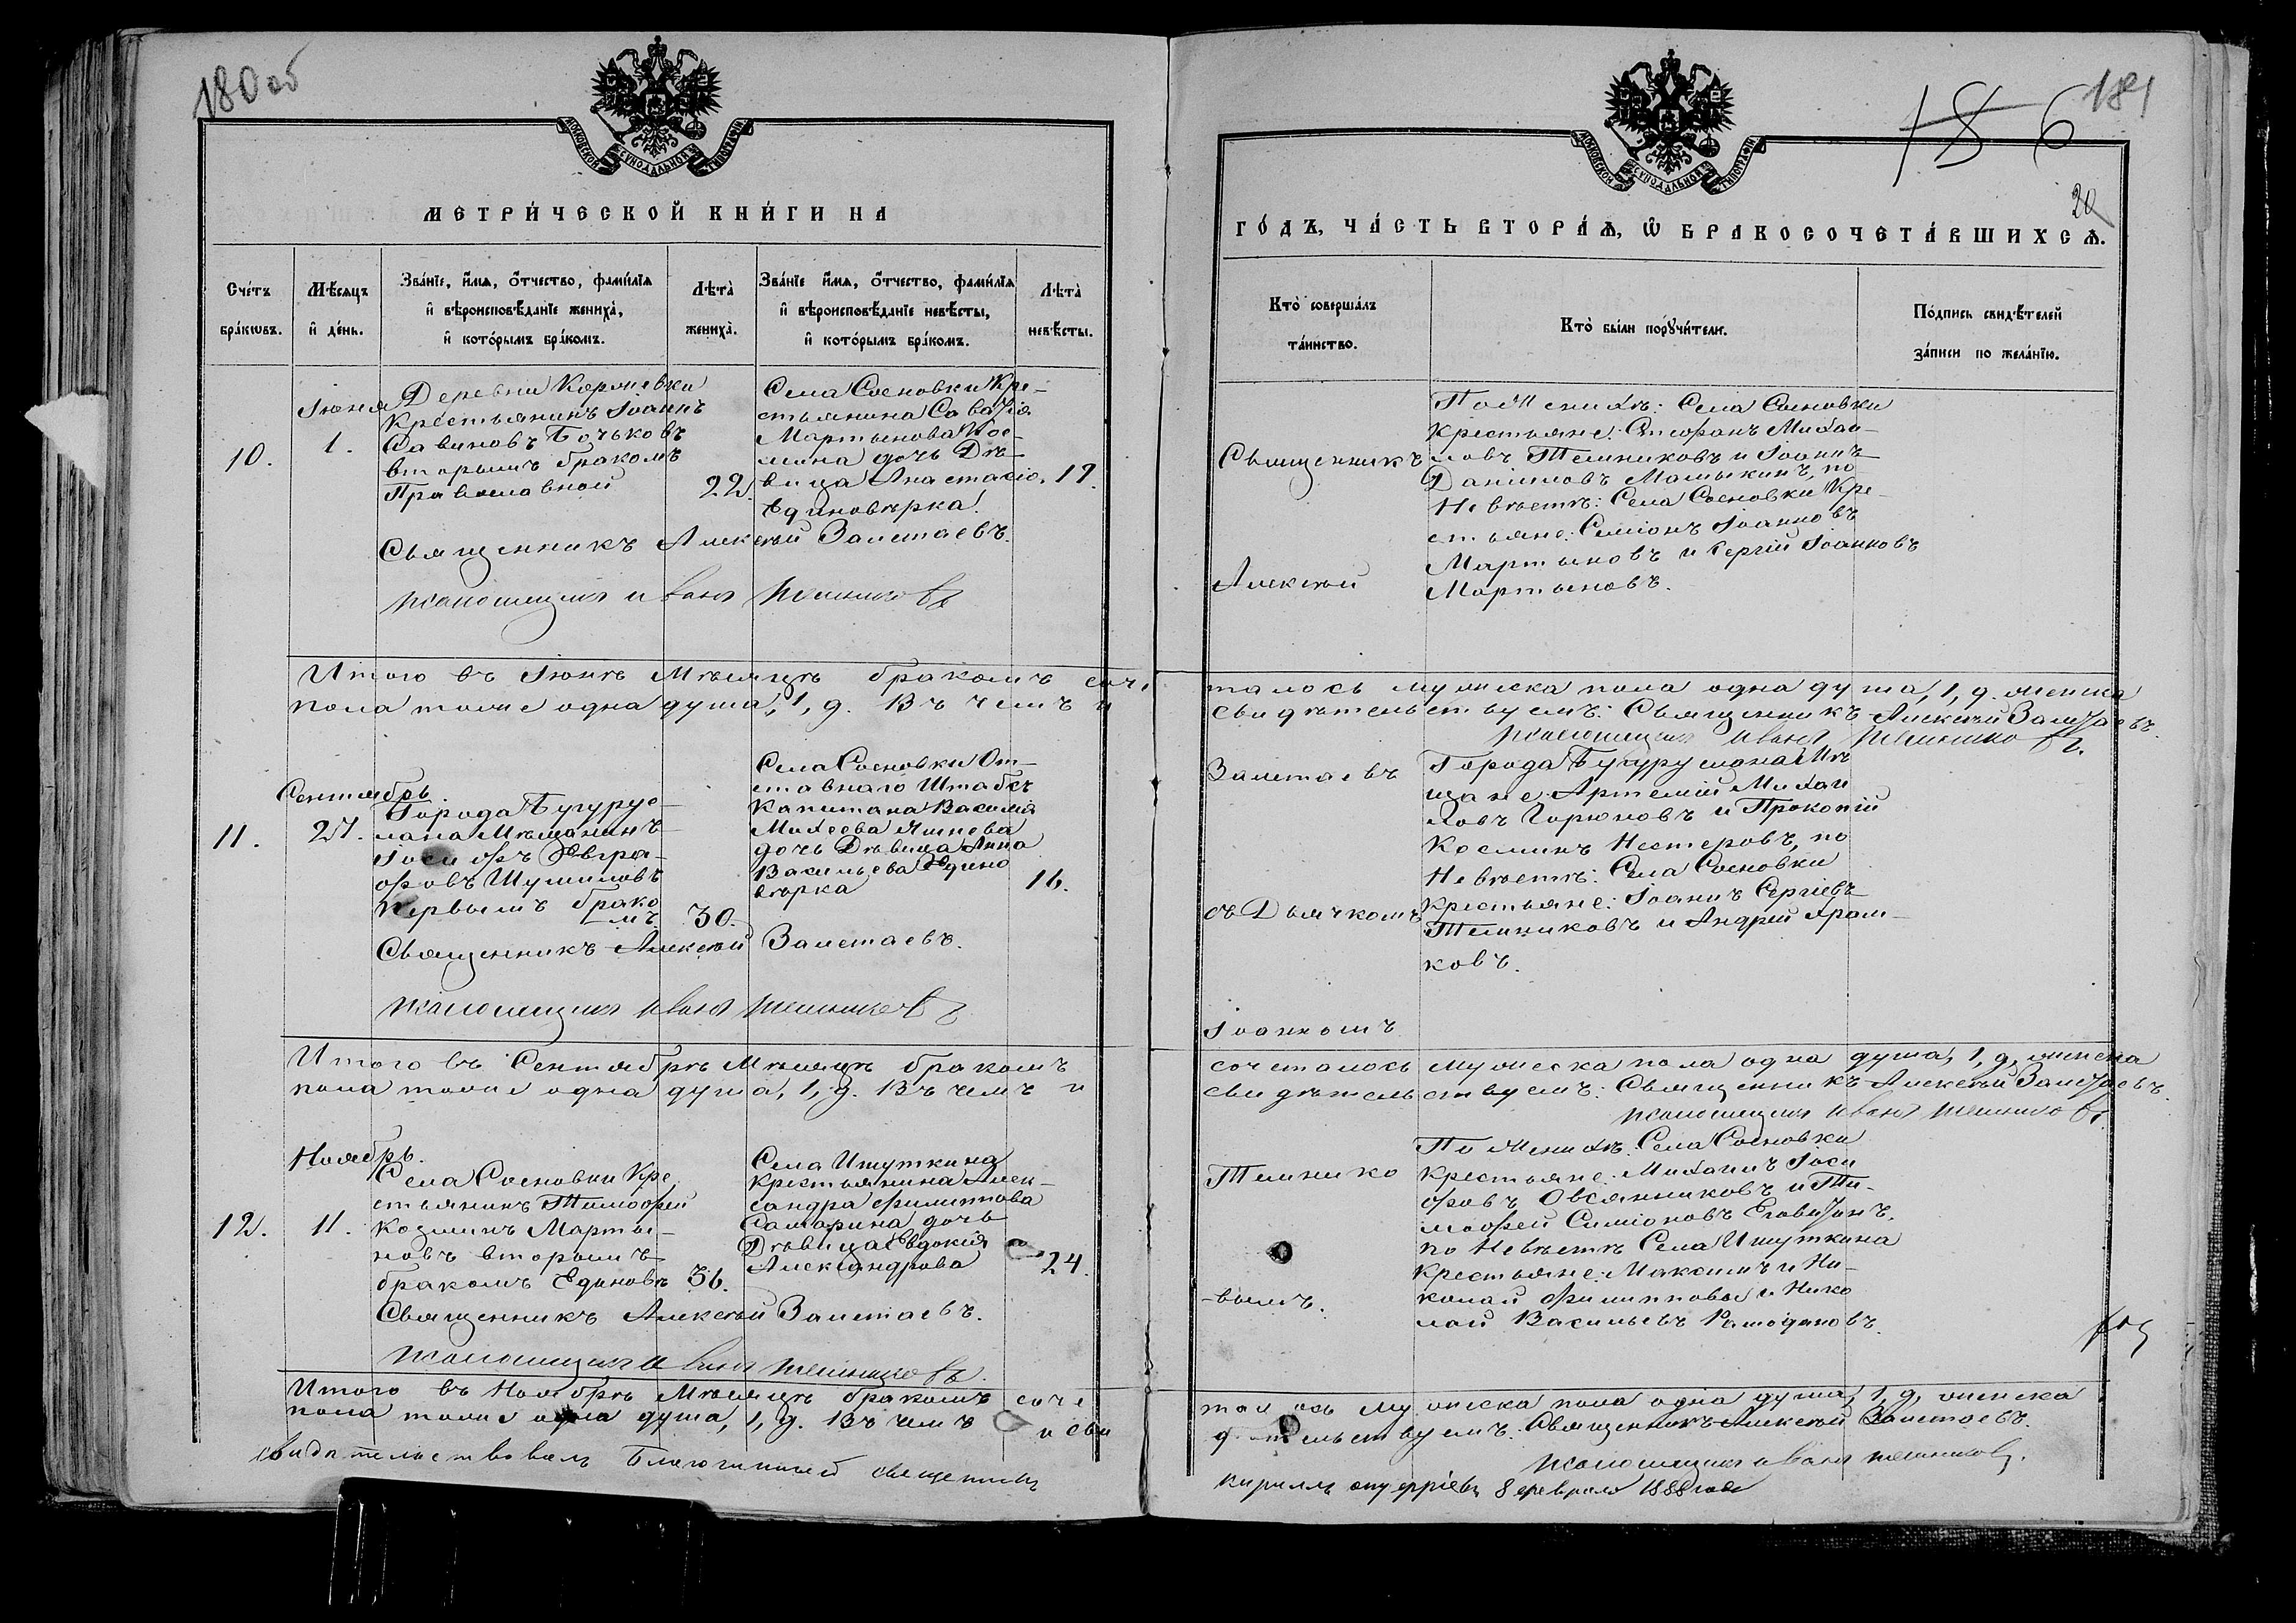 180 об
МОСКОВСКОЙ СѴНОДАЛЬНОЙ ТИПОГРАФІИ
МЕТРИ́ЧЕСКОЙ КНИ́ГИ НА
Сче́тъ бра́кωвъ.
Мѣ́сяцъ и де́нь.
Зва́нїе, и́мя, о́тчество, фами́лїя
и вѣроисповѣ́данїе жениха̀,
и кото́рымъ бра́комъ.
Лѣта̀ жениха̀.
Зва́нїе и́мя, о́тчество, фами́лїя
и вѣроисповѣ́данїе невѣ́сты,
и кото́рымъ бра́комъ.
Лѣта̀ невѣ́сты.
10.
Іюня
1.
Деревни
Крестьянинъ Іоаннъ
Савиновъ Бочьковъ
вторымъ бракомъ
Православной
22.
Села Сосновки Кре-
стьянина Саватія
Мартынова
дочь Дѣ-
вица Анастасія.
Единовѣрка.
19.
Священникъ Алексѣй Залетаевъ.
Иванъ
Итого въ Іюнѣ Мѣсяцѣ бракомъ соче
пола тоже одна душа, 1, д. Въ чемъ и
11.
Сентябрь
27.
Города Бугурус-
лана Мѣщанинъ
Іосифъ Евгра-
фовъ Шумиловъ
Первымъ брако
мъ.
30.
Села Сосновки От-
ставнаго Штабсъ
Капитана Василія
Михеева
дочь Дѣвица Анна
Васильева Едино
вѣрка
16.
Священникъ Алексѣй Залетаевъ.
Иванъ
Итого въ Сентябрѣ Мѣсяцѣ бракомъ
пола тоже одна душа, 1, д. Въ чемъ и
12.
Ноябрь.
11.
Села Сосновки Кре
стьянинъ Тимофей
Козминъ Марты-
новъ вторымъ
бракомъ Единовѣ
36.
Села Ишуткина
Крестьянина Алек-
сандра Филиппова
Самарина дочь
Дѣвица Евдокия
Александрова
24.
Священникъ Алексѣй Залетаевъ.
Иванъ
Итого въ Ноябрѣ Мѣсяцѣ бракомъ соче
пола тоже одна душа, 1, д. Въ чемъ и сви
свидѣтельствовалъ Благочинный священникъ
186
181
20
МОСКОВСКОЙ СѴНОДАЛЬНОЙ ТИПОГРАФІИ
ГО́ДЪ, ЧА́СТЬ ВТОРА́Я, Ѡ БРАКОСОЧЕТА́ВШИХСЯ.
Кто̀ соверша́лъ та́инство.
Кто̀ бы́ли порꙋчи́тели.
По́дпись свидѣ́телей за́писи по жела́нїю.
Священникъ
Алексѣй
Залетаевъ
съ Дьячкомъ
Іоанномъ
Темнико
-вымъ.
По Женихѣ: Села Сосновки
Крестьяне: Стефанъ Михаи-
ловъ Темниковъ и Іоаннъ
Даніиловъ Малыкинъ, по
Невѣстѣ: Села Сосновки Кре-
стьяне: Симіонъ Іоанновъ
Мартыновъ и Сергій Іоанновъ
Мартыновъ.
талось мужеска пола одна душа, 1, д. женска
свидѣтельствуемъ: Священникъ Алексѣй Залетаевъ.
Иванъ
Города Бугуруслана Мѣ
щане: Артемій Михаи
ловъ Горюновъ и Прокопій
Косминъ Нестеровъ, по
Невѣстѣ: Села Сосновки
Крестьяне: Іоаннъ Сергіевъ
Темниковъ и Андрей Храм-
ковъ.
сочеталось мужеска пола одна душа, 1, д, женска
свидѣтельствуемъ: Священникъ Алексѣй Залетаевъ.
Иванъ
По Женихѣ. Села Сосновки
Крестьяне: Михаилъ Іоси
фовъ Овсянниковъ и Ти-
мофей Симіоновъ
по Невѣстѣ Села Ишуткина
Крестьяне: Максимъ и Ни-
колай Филипповы и Нико
лай Васильевъ
талось мужеска пола одна душа, 1, д, женска
дѣтельствуемъ: Священникъ Алексѣй Залетаевъ.
Иванъ
Кириллъ 8 февраля 1888 года